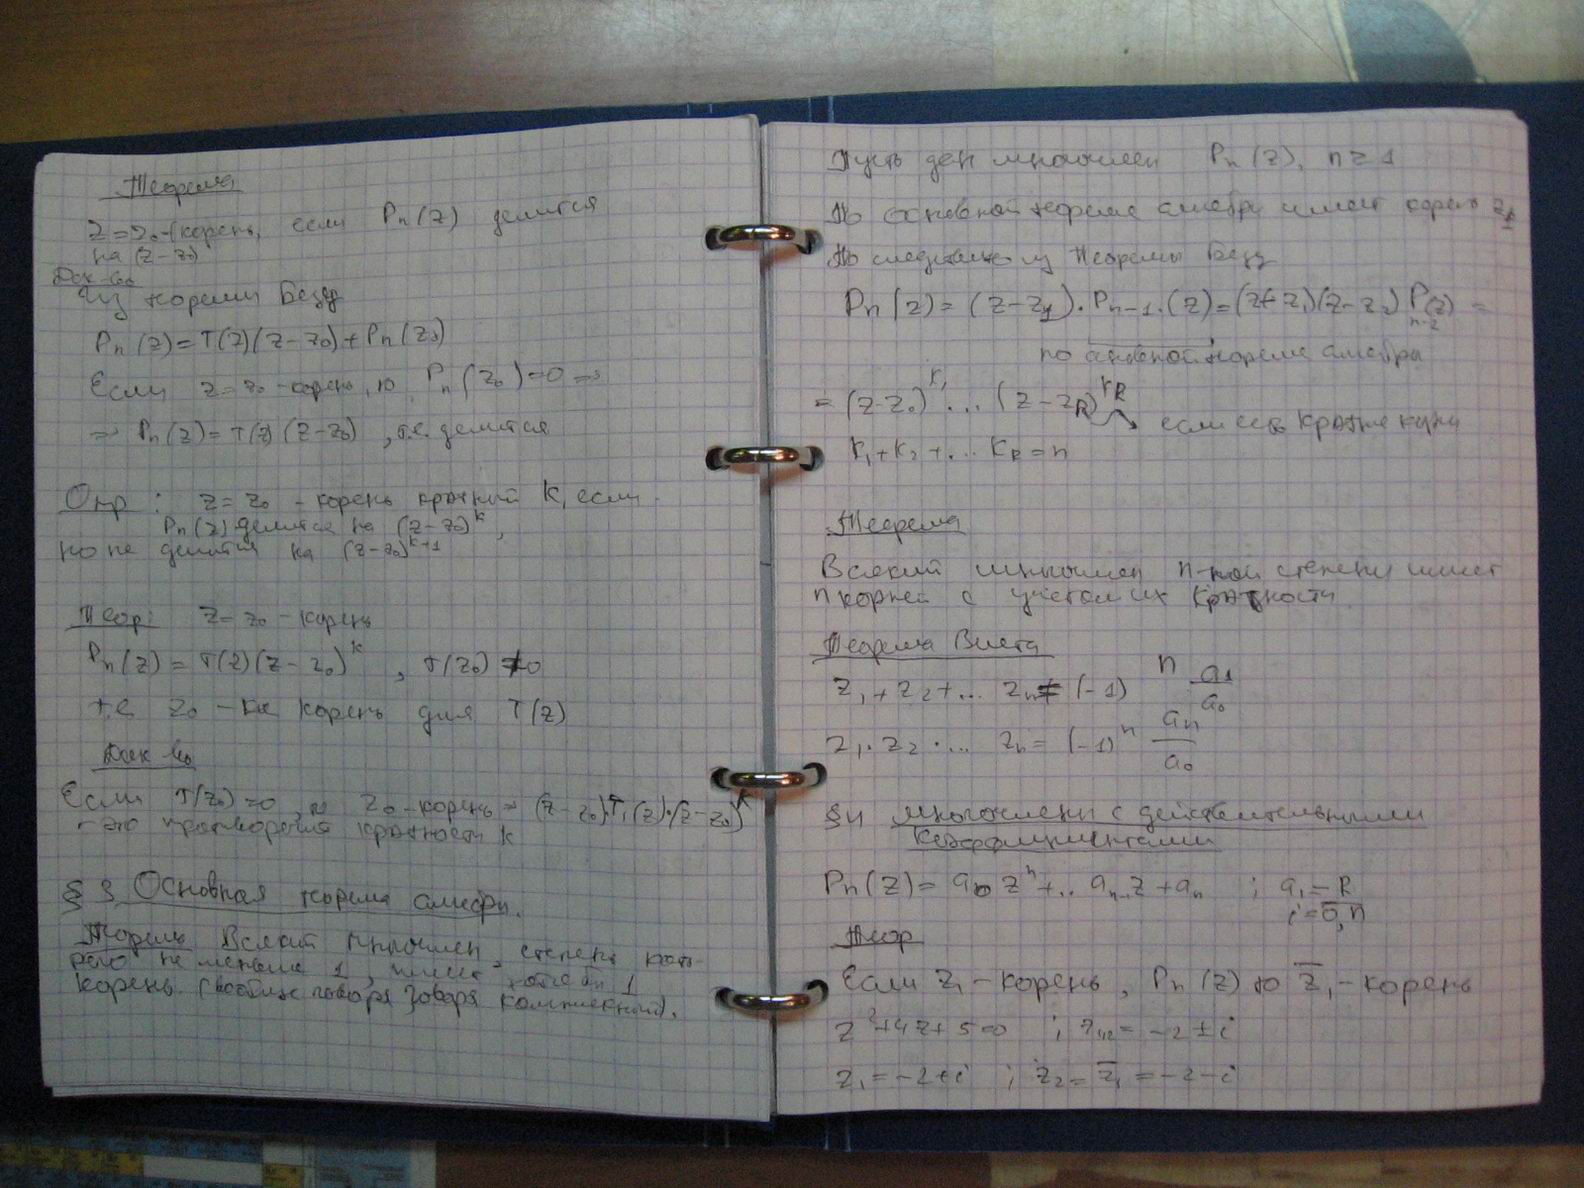 Теорема
z=z₀-корень, если Pₙ(z) делится
на (z-z₀)
Док-во
Из теоремы Безу
Pₙ(z)=T(z)(z-z₀)+Pₙ(z₀)
Если z=z₀-корень, то Pₙ(z₀)=0 =>
=> Pₙ(z)=T(z)(z-z₀), т.е. делится
Опр: z=z₀ - корень кратный k, если
Pₙ(z) делится на (z-z₀)^k,
но не делится на (z-z₀)^{k+1}
Теор: z=z₀-корень
Pₙ(z)=T(z)(z-z₀)^k, T(z₀)≠0
т.е z₀-не корень для T(z)
Док-во
Если T(z₀)=0, то z₀-корень => (z-z₀)·T₁(z)·(z-z₀)^k
- это кратности k
§3 Основная теорема алгебры.
Теорема Всякий многочлен, степень кото-
рого не меньше 1, имеет хотя бы 1
корень (вообще говоря говоря комплексный).
Пусть дан многочлен Pₙ(z), n≥1
По основной теореме алгебры имеет корень z₁
По следствию из Теоремы Безу
Pₙ(z)=(z-z₁)·Pₙ₋₁·(z)=(z-z₁)(z-z₂)Pₙ₋₂(z)=
по основной теореме алгебры
=(z-z₀)^{k₁}...(z-z_R)^{k_R} если есть кратные
k₁+k₂+...k_R=n
Теорема
Всякий многочлен n-ной степени имеет
n корней с учетом их кратности
Теорема Виета
z₁+z₂+... zₙ=(-1)ⁿ a₁/a₀
z₁·z₂·... zₙ=(-1)ⁿ aₙ/a₀
§4 Многочлены с действительными
коэффициентами
Pₙ(z)=a₀zⁿ+..aₙ₋₁z+aₙ ; aᵢ-R
i=0,n
Теор
Если z₁-корень, Pₙ(z) то z̄₁-корень
z²+4z+5=0 ; z₁,₂=-2±i
z₁=-2+i ; z₂=z̄₁=-2-i